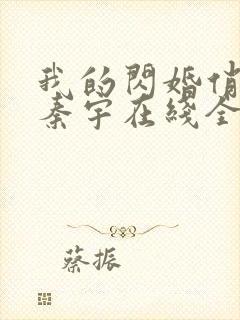 我的閃婚俏
秦宇在綫全
蔡振